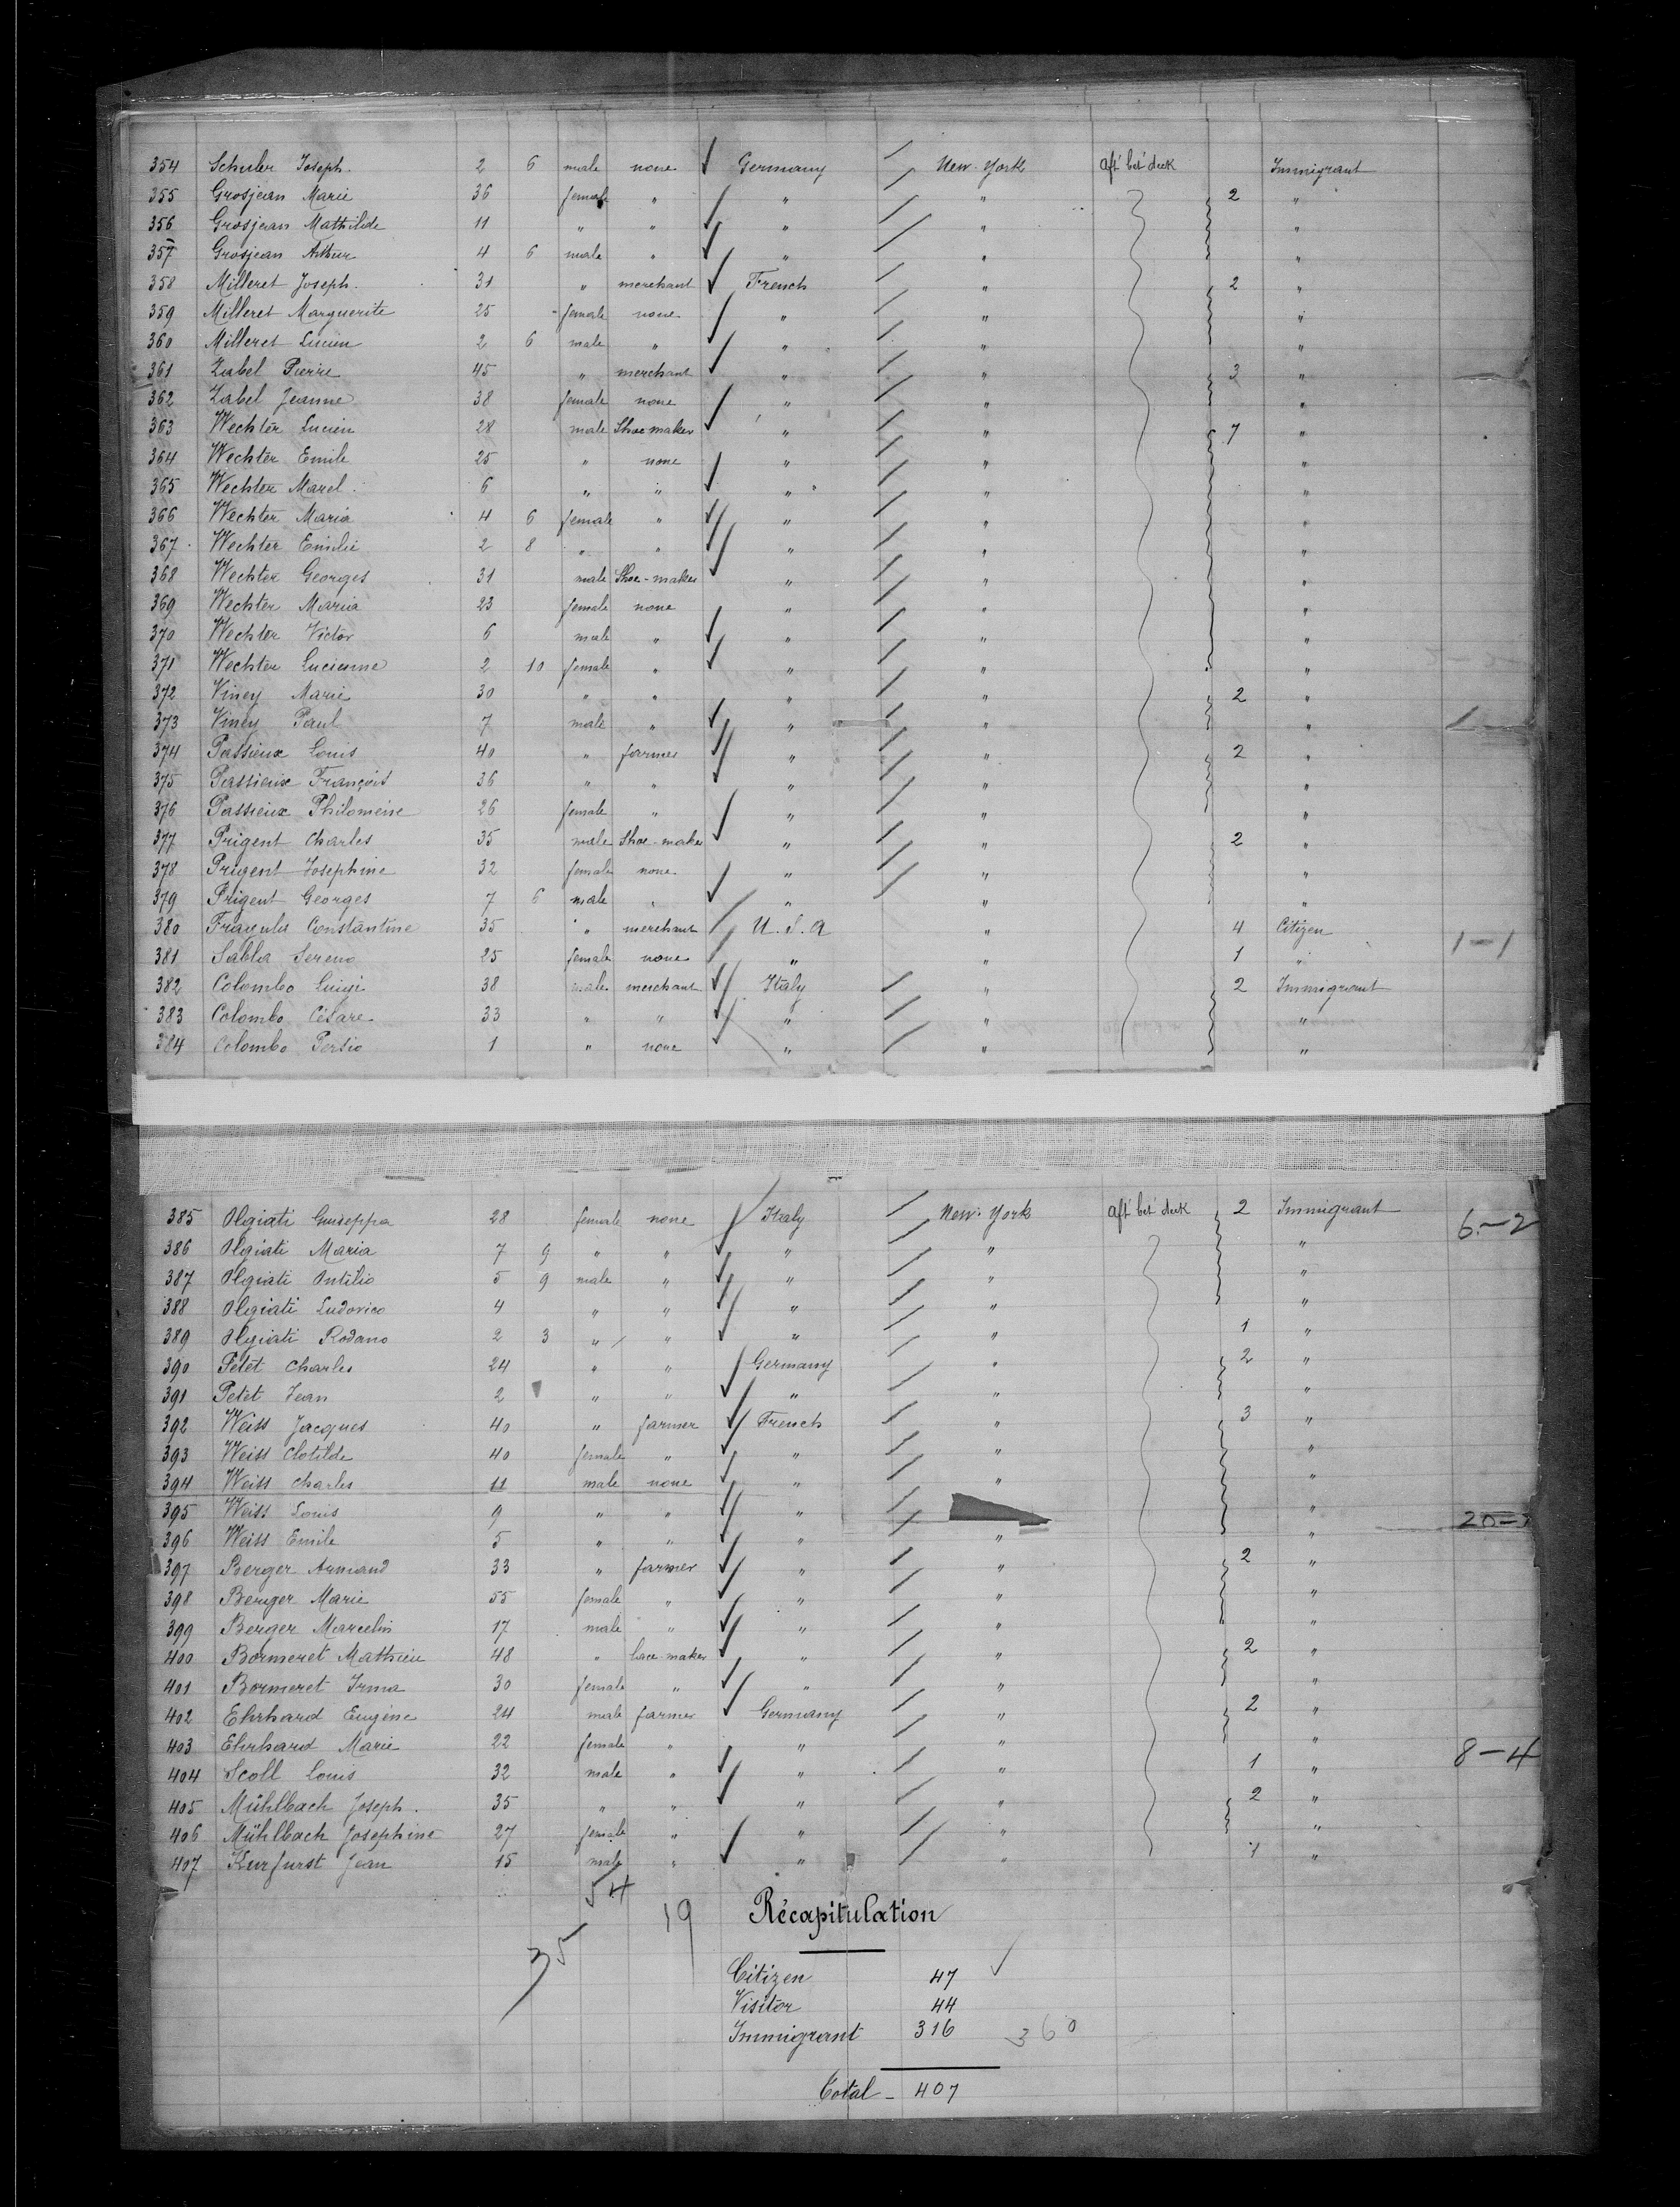 354 Schuler Joseph. 2 6 male none Germany New-York aft bet deck Immigrant
355 Grosjean Marie 36 female " " " 2 "
356 Grosjean Mathilde 11 " " " " "
357 Grosjean Arthur 4 6 male " " " "
358 Milleret Joseph. 31 " merchant French " 2 "
359 Milleret Marguerite 25 female none " " "
360 Milleret Lucien 2 6 male " " " "
361 Zabel Pierre 45 " merchant " " 3 "
362 Zabel Jeanne 38 female none " " "
363 Wechter Lucien 28 male Shoe maker " " 7 "
364 Wechter Emile 25 " none " " "
365 Wechter Marel 6 " " " " "
366 Wechter Maria 4 6 female " " " "
367 Wechter Emilie 2 8 " " " " "
368 Wechter Georges 31 male Shoe-maker " " "
369 Wechter Maria 23 female none " " "
370 Wechter Victor 6 male " " " "
371 Wechter Lucienne 2 10 female " " " "
372 Viney Marie 30 " " " " 2 "
373 Viney Paul 7 male " " " "
374 Passieux Louis 40 " farmer " " 2 "
375 Passieux François 36 " " " " "
376 Passieux Philomene 26 female " " " "
377 Prigent Charles 35 male Shoe-maker " " 2 "
378 Prigent Josephine 32 female none " " "
379 Prigent Georges 7 6 male " " " "
380 Constantine 35 " merchant U.S.A " 4 Citizen
381 Salla Sereno 25 female none " " 1 " 1-1
382 Colombo Luigi 38 male merchant Italy " 2 Immigrant
383 Colombo Césare 33 " " " " "
384 Colombo Persio 1 " none " " "
385 Olgiati Guiseppa 28 female none Italy New-York aft bet deck 2 Immigrant 6-2
386 Olgiati Maria 7 9 " " " " "
387 Olgiati Antilio 5 9 male " " " "
388 Olgiati Ludovico 4 " " " " "
389 Olgiati Rodano 2 3 " " " " 1 "
390 Petet Charles 24 " " Germany " 2 "
391 Petet Jean 2 " " " " "
392 Weiss Jacques 40 " farmer French " 3 "
393 Weiss Clotilde 40 female " " " "
394 Weiss Charles 11 male none " " "
395 Weiss Louis 9 " " " " 20-
396 Weiss Emile 5 " " " " "
397 Berger Armand 33 " farmer " " 2 "
398 Berger Marie 55 female " " " "
399 Berger Marcelin 17 male " " " "
400 Bormeret Mathieu 48 " lace-maker " " 2 "
401 Bormeret Irma 30 female " " " "
402 Ehrhard Eugène 24 male farmer Germany " 2 "
403 Ehrhard Marie 22 female " " " "
404 Scoll Louis 32 male " " " 1 " 8-4
405 Mühlbach Joseph. 35 " " " " 2 "
406 Mühlbach Josephine 27 female " " " "
407 Kurfurst Jean 15 male " " " 1 "
54
35 19 Récapitulation
Citizen 47
Visitor 44
Immigrant 316 360
Total - 407